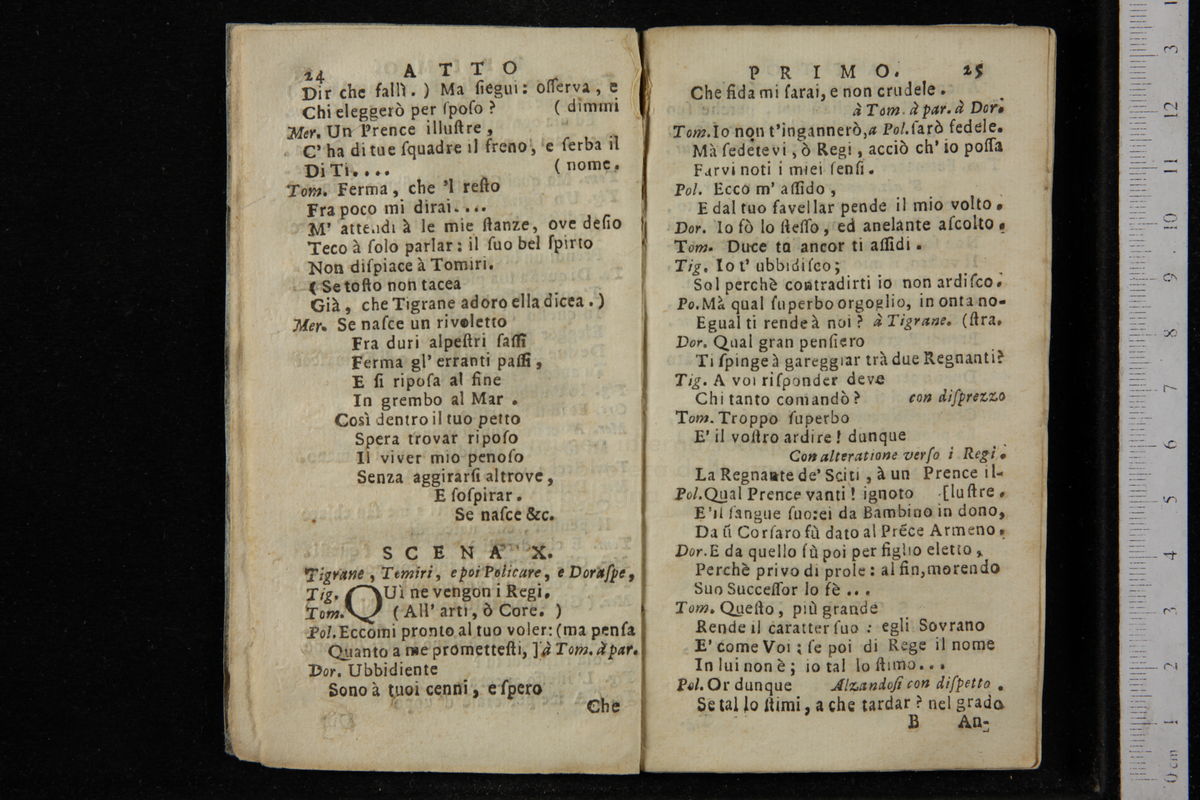 24 ATTO
Dir che fallì. ) Ma ſiegui: oſſerva, e
Chi eleggerò per ſpoſo ? ( dimmi
Mer. Un Prence illuſtre,
C' ha di tue ſquadre il freno, e ſerba il
Di Ti.... ( nome.
Tom. Ferma, che 'l reſto
Fra poco mi dirai....
M' attendi à le mie ſtanze, ove deſio
Teco à ſolo parlar: il ſuo bel ſpirto
Non diſpiace à Tomiri.
( Se toſto non tacea
Già, che Tigrane adoro ella dicea. )
Mer. Se naſce un rivoletto
Fra duri alpeſtri ſaſſi
Ferma gl' erranti paſſi,
E ſi ripoſa al fine
In grembo al Mar.
Così dentro il tuo petto
Spera trovar ripoſo
Il viver mio penoſo
Senza aggirarſi altrove,
E ſoſpirar.
Se naſce &c.
SCENA X.
Tigrane, Tomiri, e poi Policare, e Doraſpe,
Tig. QUì ne vengon i Regi.
Tom. ( All' arti, ò Core. )
Pol. Eccomi pronto al tuo voler: (ma penſa
Quanto a me prometteſti, ] à Tom. à par.
Dor. Ubbidiente
Sono à tuoi cenni, e ſpero
Che
PRIMO. 25
Che fida mi ſarai, e non crudele.
à Tom. à par. à Dor.
Tom. Io non t'ingannerò, a Pol. ſarò fedele.
Mà ſedetevi, ò Regi, acciò ch' io poſſa
Farvi noti i miei ſenſi.
Pol. Ecco m' aſſido,
E dal tuo favellar pende il mio volto.
Dor. Io fò lo ſteſſo, ed anelante aſcolto.
Tom. Duce tu ancor ti aſſidi.
Tig. Io t' ubbidiſco;
Sol perchè contradirti io non ardiſco.
Po. Mà qual ſuperbo orgoglio, in onta no-
Egual ti rende à noi ? à Tigrane. (ſtra.
Dor. Qual gran penſiero
Ti ſpinge à gareggiar trà due Regnanti?
Tig. A voi riſponder deve
Chi tanto comandò ? con diſprezzo
Tom. Troppo ſuperbo
E' il voſtro ardire ! dunque
Con alteratione verſo i Regi.
La Regnante de' Sciti, à un Prence il-
Pol. Qual Prence vanti ! ignoto [luſtre.
E'il ſangue ſuo: ei da Bambino in dono,
Da ũ Corſaro fù dato al Prẽce Armeno.
Dor. E da quello fù poi per figlio eletto,
Perchè privo di prole: al fin, morendo
Suo Succeſſor lo fè...
Tom. Queſto, più grande
Rende il caratter ſuo : egli Sovrano
E' come Voi; ſe poi di Rege il nome
In lui non è; io tal lo ſtimo...
Pol. Or dunque Alzandoſi con diſpetto.
Se tal lo ſtimi, a che tardar ? nel grado
B An-